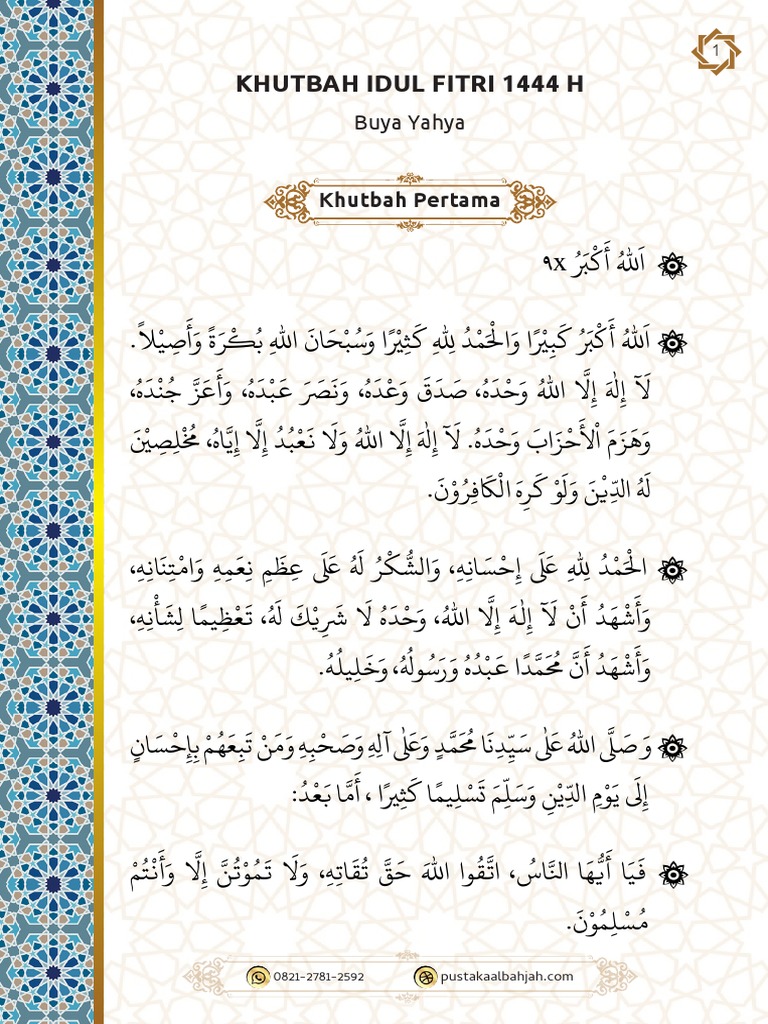 1
KHUTBAH IDUL FITRI 1444 H
Buya Yahya
Khutbah Pertama
اَللهُ أَكْبَرُ ٩x
اَللهُ أَكْبَرُ كَبِيْرًا وَالْحَمْدُ لِلهِ كَثِيْرًا وَسُبْحَانَ اللهِ بُكْرَةً وَأَصِيْلاً.
لَآ إِلٰهَ إِلَّا اللهُ وَحْدَهُ، صَدَقَ وَعْدَهُ، وَنَصَرَ عَبْدَهُ، وَأَعَزَّ جُنْدَهُ،
وَهَزَمَ الْأَحْزَابَ وَحْدَهُ. لَآ إِلٰهَ إِلَّا اللهُ وَلَا نَعْبُدُ إِلَّا إِيَّاهُ، مُخْلِصِيْنَ
لَهُ الدِّيْنَ وَلَوْ كَرِهَ الْكَافِرُوْنَ.
الْحَمْدُ لِلهِ عَلَى إِحْسَانِهِ، وَالشُّكْرُ لَهُ عَلَى عِظَمِ نِعَمِهِ وَامْتِنَانِهِ،
وَأَشْهَدُ أَنْ لَآ إِلٰهَ إِلَّا اللهُ، وَحْدَهُ لَا شَرِيْكَ لَهُ، تَعْظِيمًا لِشَأْنِهِ،
وَأَشْهَدُ أَنَّ مُحَمَّدًا عَبْدُهُ وَرَسُولُهُ، وَخَلِيلُهُ.
وَصَلَّى اللهُ عَلٰى سَيِّدِنَا مُحَمَّدٍ وَعَلٰى آلِهِ وَصَحْبِهِ وَمَنْ تَبِعَهُمْ بِإِحْسَانٍ
إِلَى يَوْمِ الدِّيْنِ وَسَلِّمَ تَسْلِيمًا كَثِيرًا ، أَمَّا بَعْدُ:
فَيَا أَيُّهَا النَّاسُ، اتَّقُوا اللهَ حَقَّ تُقَاتِهِ، وَلَا تَمُوْتُنَّ إِلَّا وَأَنْتُمْ
مُسْلِمُوْنَ.
0821-2781-2592 pustakaalbahjah.com